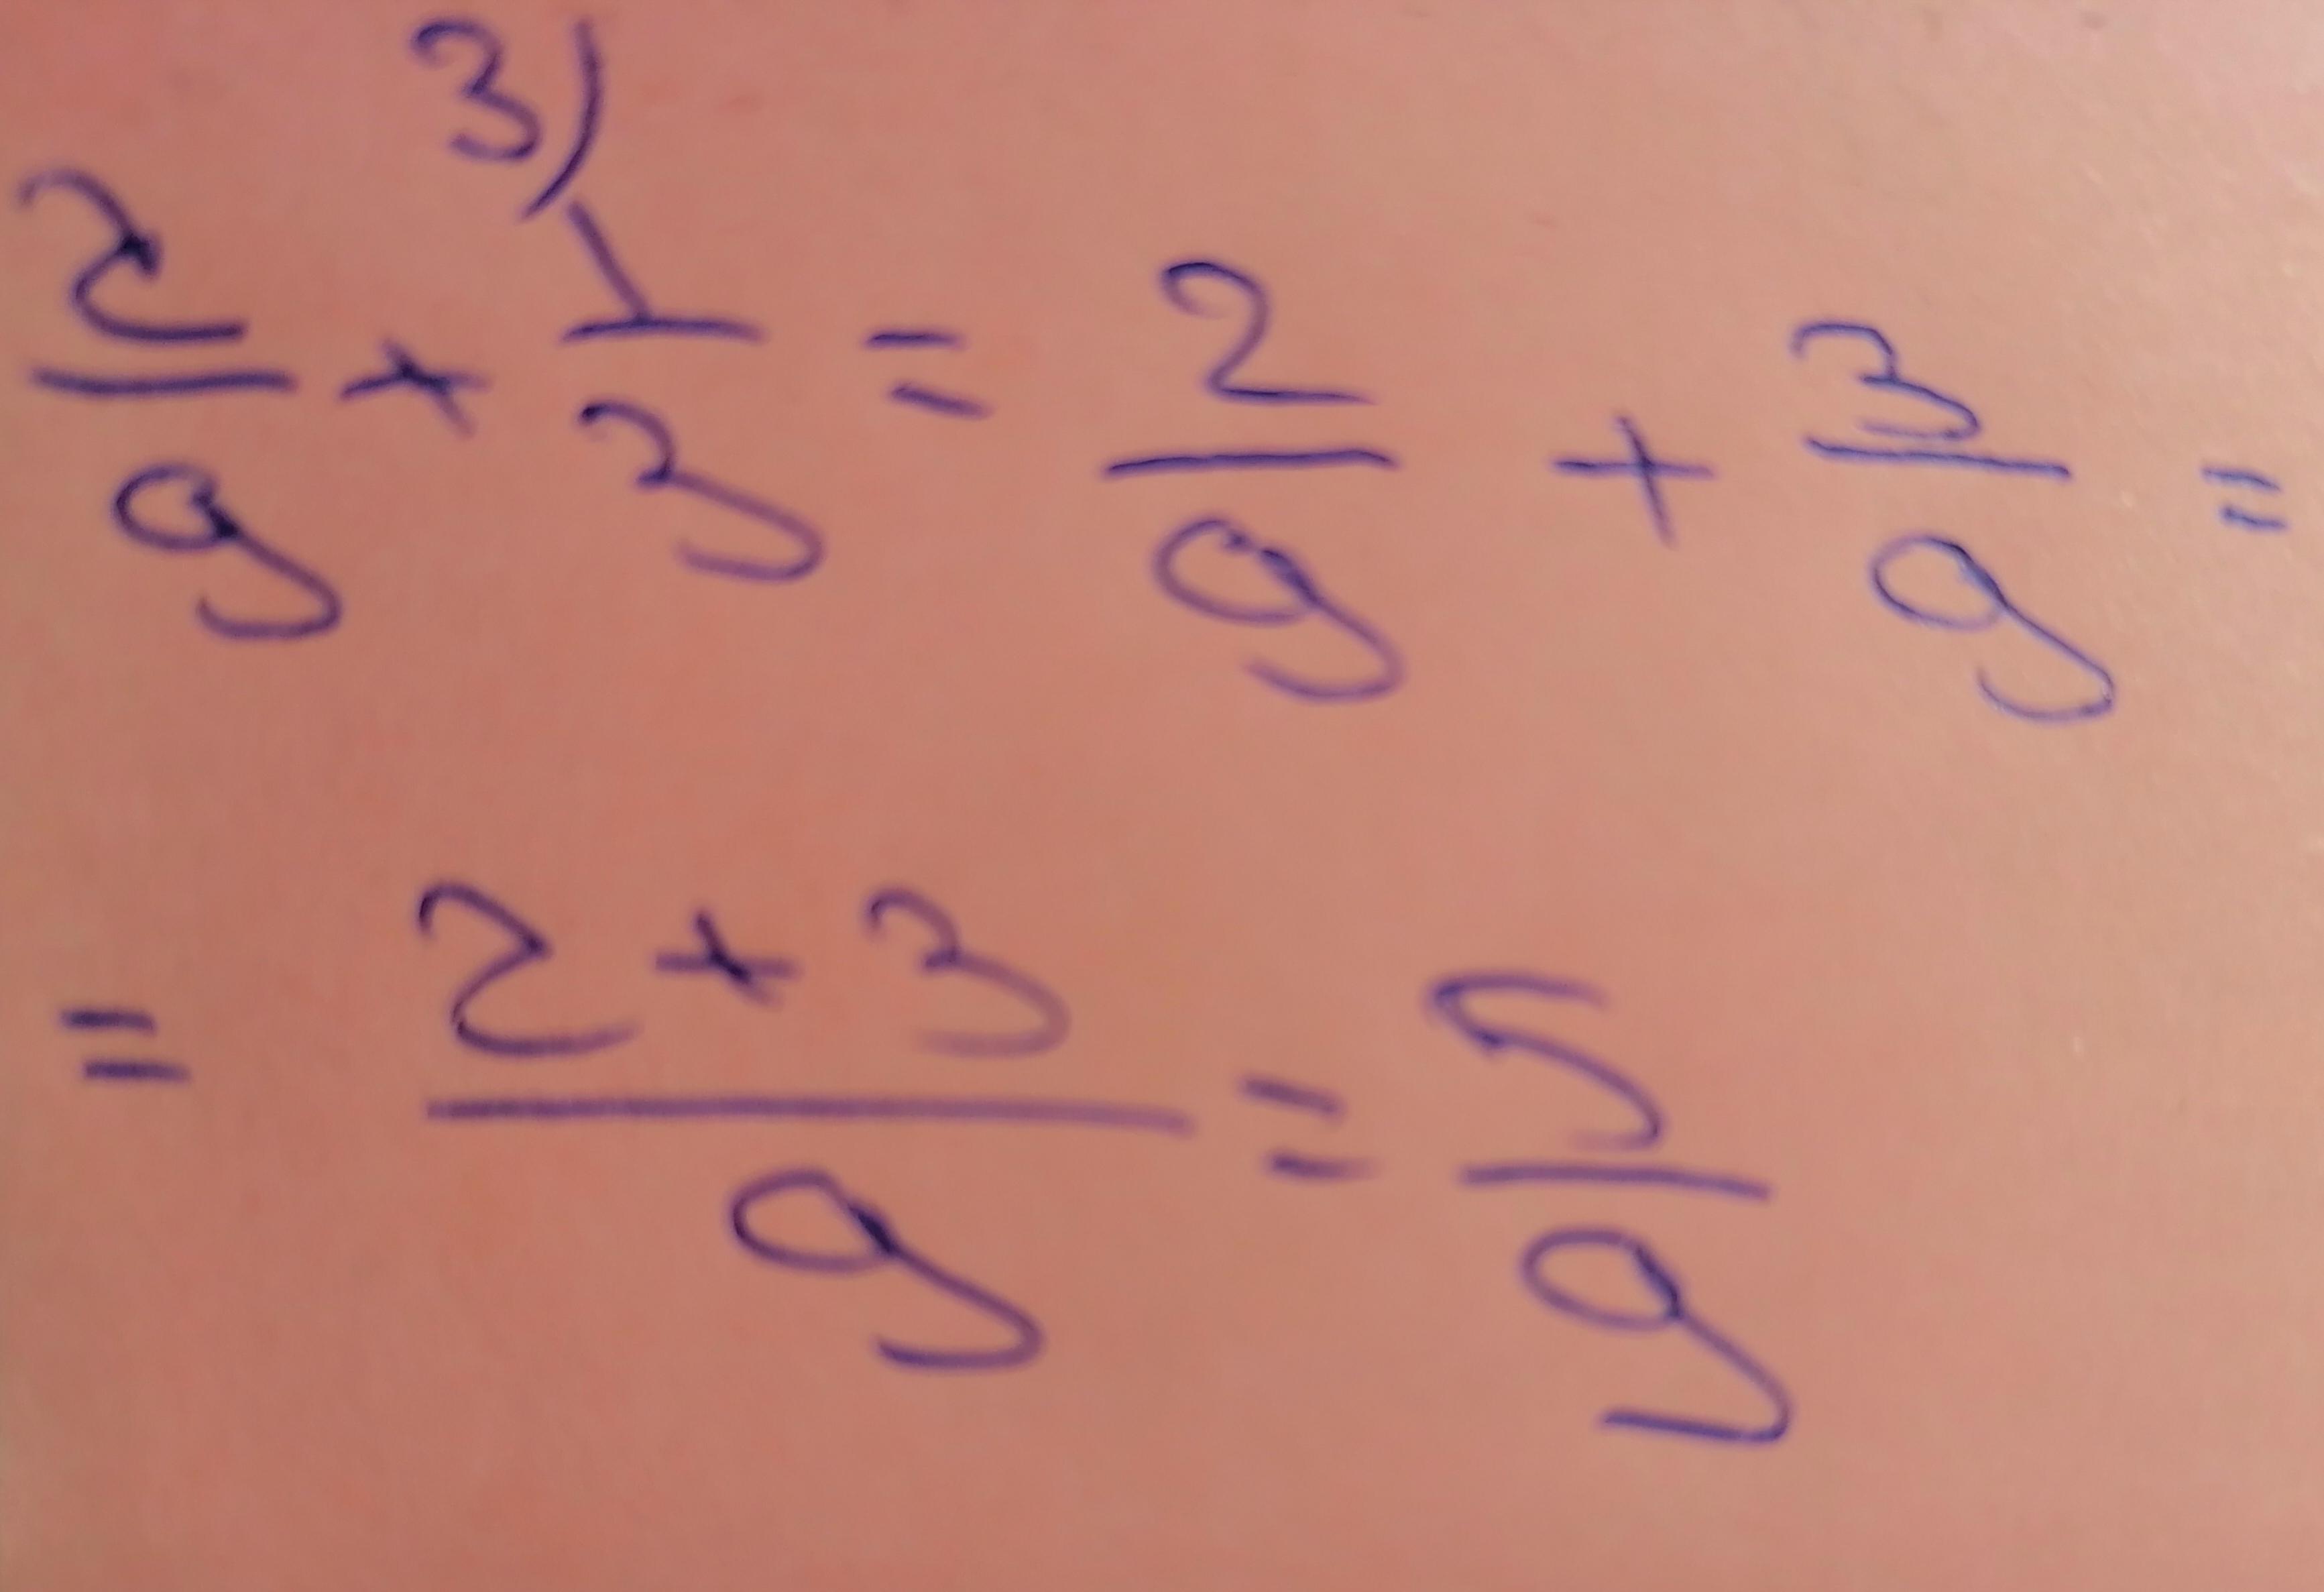 2/9 + 3) 1/3 = 2/9 + 3/9 =
= (2 + 3)/9 = 5/9